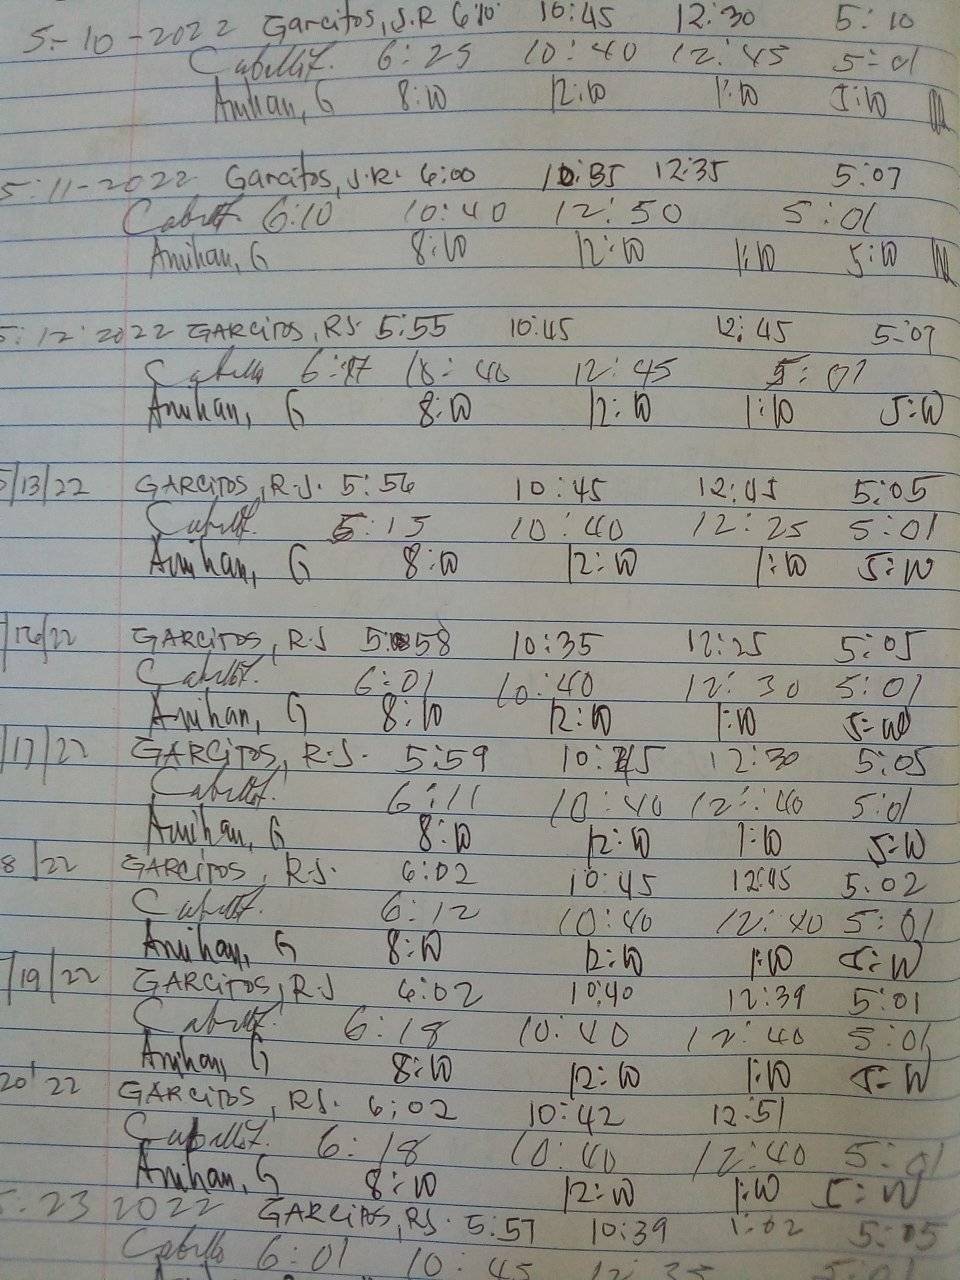 5-10-2022 Garcitos, J.R 6:10 10:45 12:30 5:10
6:25 10:40 12:45 5:01
Amihan, G 8:00 12:00 1:00 5:00
5:11-2022 Garcitos, J.R. 6:00 10:35 12:35 5:07
6:10 10:40 12:50 5:01
Amihan, G 8:00 12:00 1:00 5:00
5:12:2022 GARCITOS, RJ. 5:55 10:45 12:45 5:07
6:17 10:40 12:45 5:01
Amihan, G 8:00 12:00 1:00 5:00
5/13/22 GARCITOS, R.J. 5:56 10:45 12:45 5:05
6:15 10:40 12:25 5:01
Amihan, G 8:00 12:00 1:00 5:00
/16/22 GARCITOS, R.J 5:58 10:35 12:25 5:05
6:01 10:40 12:30 5:01
Amihan, G 8:00 12:00 1:00 5:00
/17/22 GARCITOS, R.J. 5:59 10:45 12:30 5:05
6:11 10:40 12:40 5:01
Amihan, G 8:00 12:00 1:00 5:00
8/22 GARCITOS, R.J. 6:02 10:45 12:45 5:02
6:12 10:40 12:40 5:01
Amihan, G 8:00 12:00 1:00 5:00
/19/22 GARCITOS, R.J 6:02 10:40 12:39 5:01
6:18 10:40 12:40 5:01
Amihan, G 8:00 12:00 1:00 5:00
20/22 GARCITOS, RJ. 6:02 10:42 12:51
6:18 10:40 12:40 5:01
Amihan, G 8:00 12:00 1:00 5:00
:23 2022 GARCITOS, RJ. 5:57 10:39 1:02 5:05
6:01 10:45 12:35 5:01